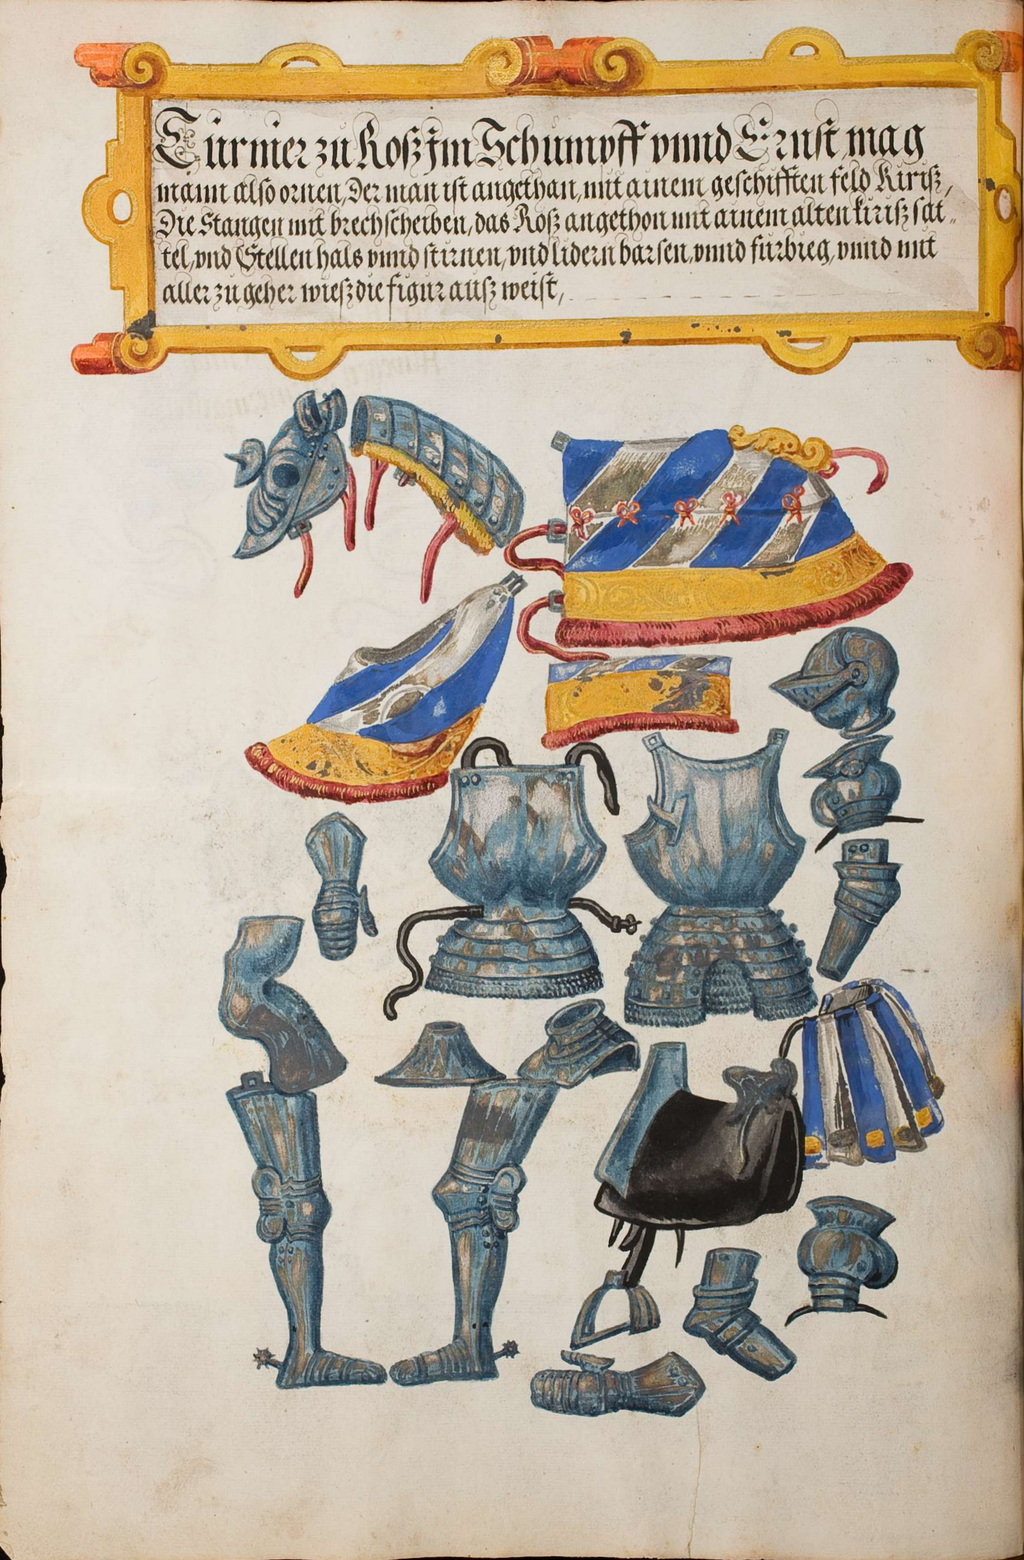 Turnier zu Roß Im Schumpff vnnd Ernst mag
mann also ornen, Der man ist angethan, mit ainem geschifften feld Kiriß,
Die Stangen mit brechscheiben, das Roß angethon mit ainem alten kiriß sat-
tel, vnd Stellen hals vnnd stirnen, vnd lidern barsen, vnnd fürbieg, vnnd mit
aller zu geher wieß die figur auß weist,